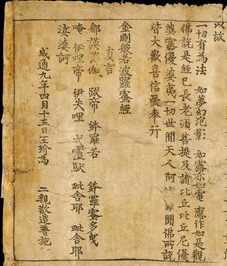 一切有為法 如夢幻泡影 如露亦如電 應作如是觀
佛說是經已長老須菩提及諸比丘比丘尼優
婆塞優婆夷一切世間天人阿 聞佛所說
皆大歡喜信受奉行
金剛般若波羅蜜經
真言
那謨 伽 跋帝 鉢羅若 鉢羅蜜多曳
唵 伊哩帝 伊失哩 戍嚧馱 毗舍耶 毗舍耶
娑婆訶
咸通九年四月十五日王玠為 二親敬造普施